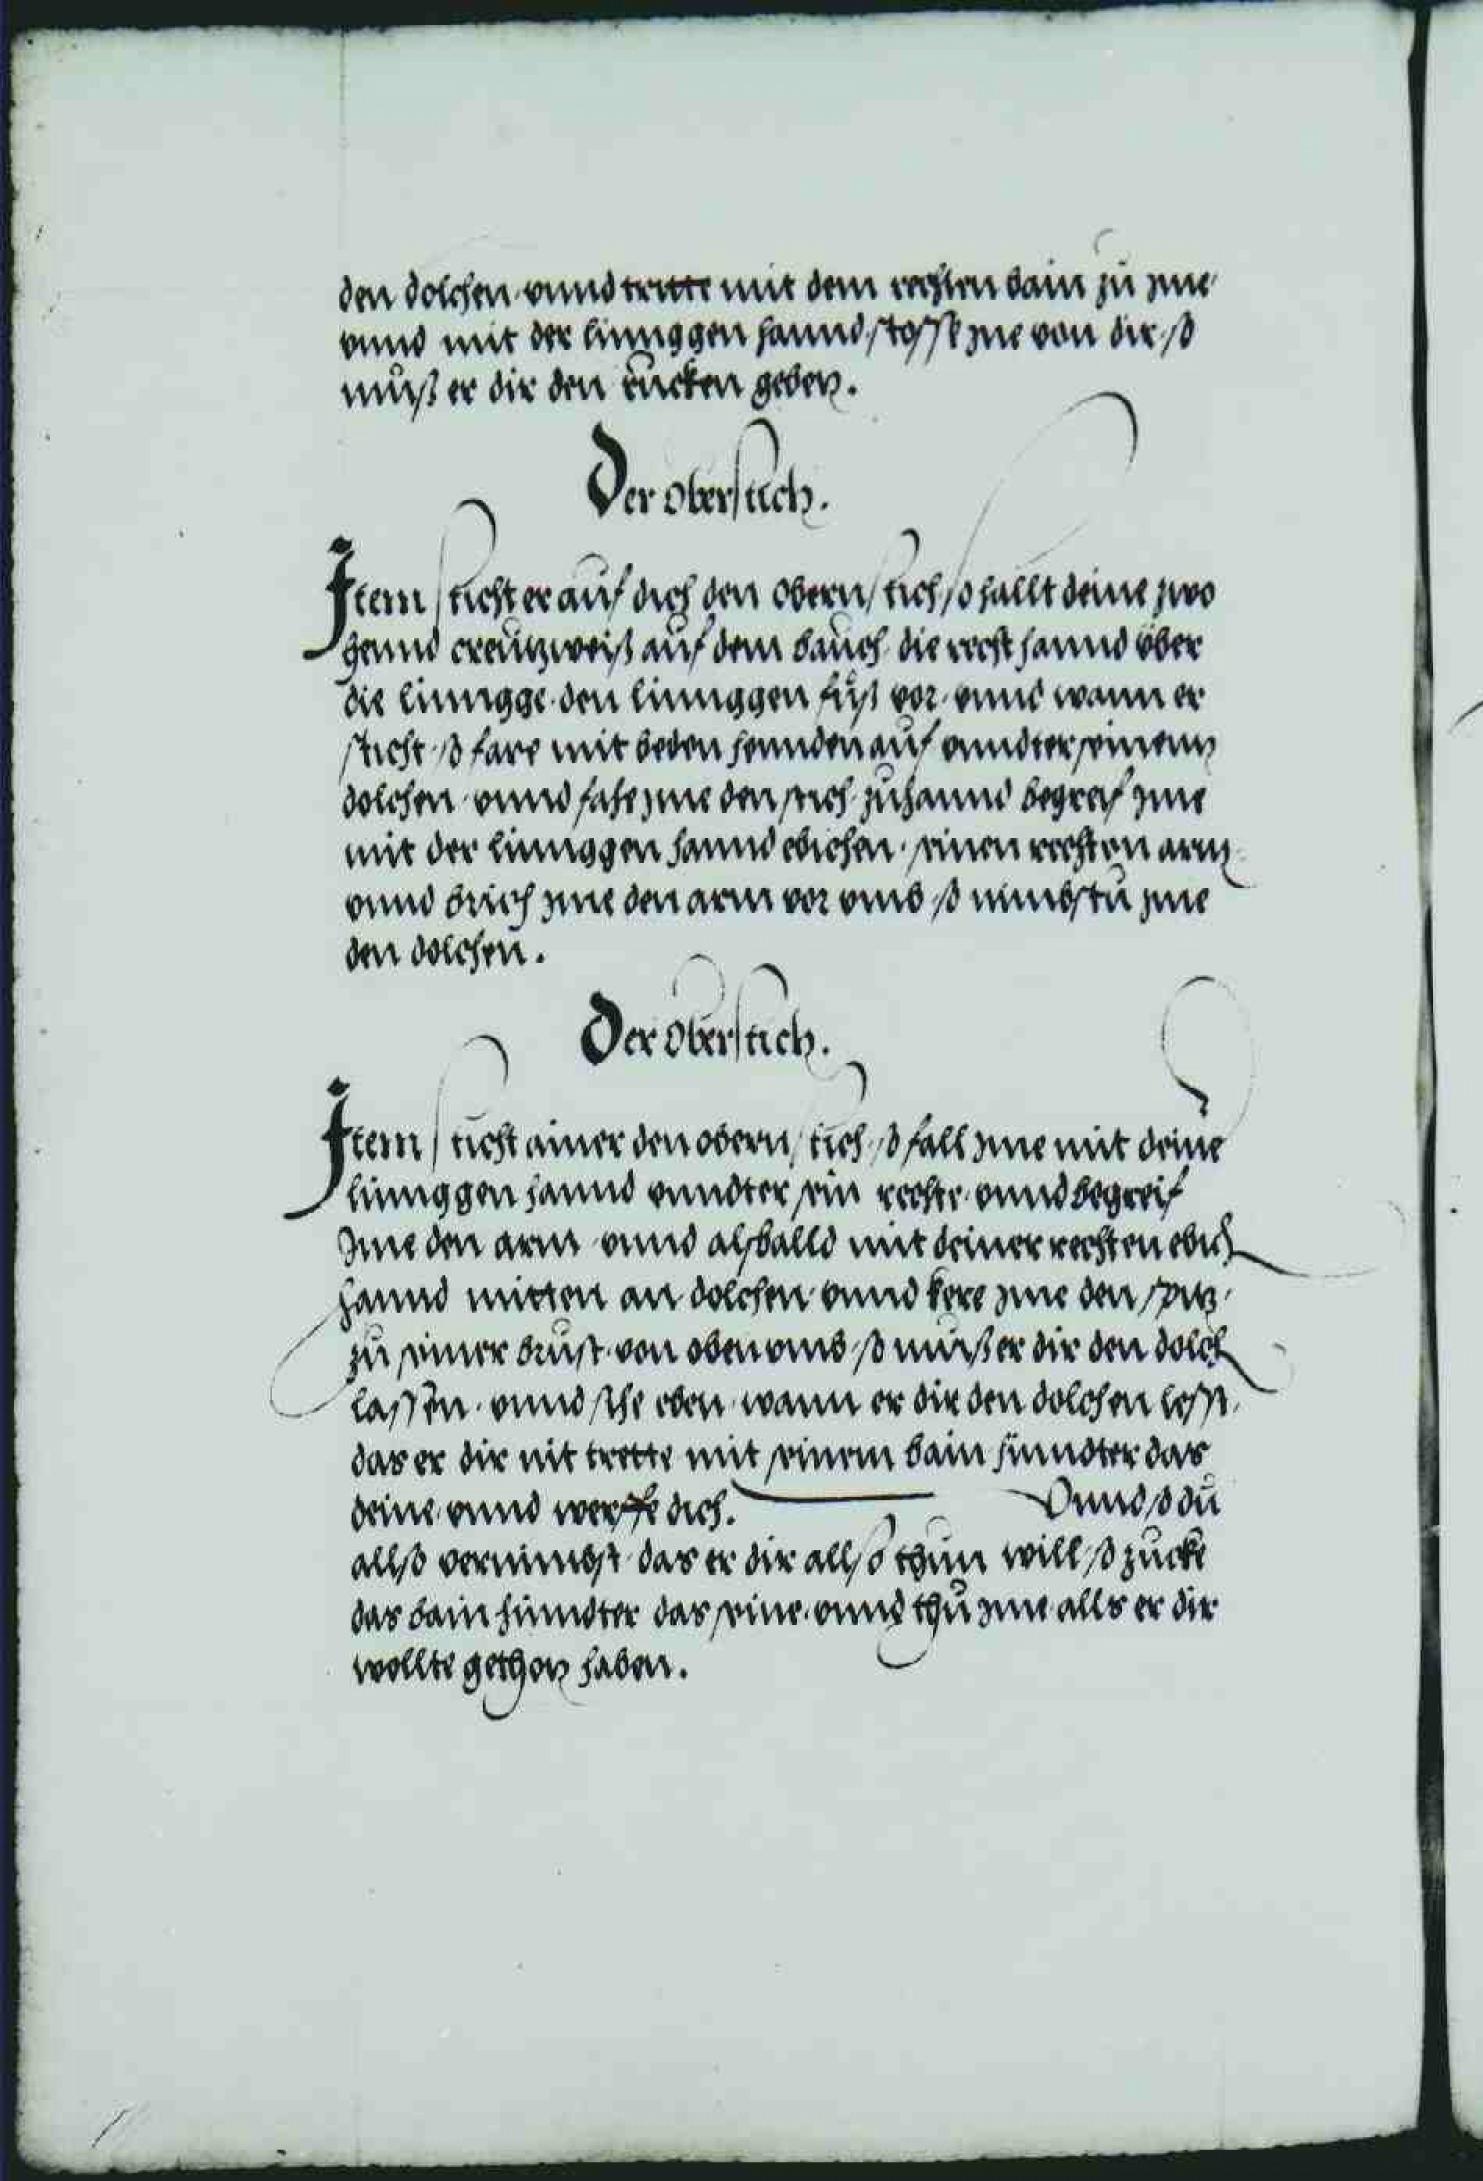 den dolchen vnnd tritte mit dem rechten bain zů yme
vnnd mit der linnggen hannd stosse yme von dir so
můß er dir den rucken geben.
Der oberstich.
Item sticht er auf dich den obern stich so hallt deine zwo
hennd creůtzweiß auf dem bauch die recht hannd über
die lingge den linnggen fůß vor vnnd wann er
sticht so fare mit beden hennden auf vnndter seinenn
dolchen vnnd fahe yme den stich zuhannd begreif yme
mit der linnggen hannd ebichen seinen rechten arm
vnnd brich yme den arm vor vmb so nimbstu yme
den dolchen.
Der oberstich.
Item sticht ainer den obern stich so fall yme mit deine
linnggen hannd vnndter sein rechte vnnd begreif
Ime den arm vnnd alsballd mit deiner rechten ebich
hannd mitten an dolchen vnnd kere yme den spitz
zu seiner brust von oben vmb so můß er dir den dolch
lassen vnnd sihe eben wann er dir den dolchen lesst
das er dir nit trette mit seinem bain hinndter das
deine vnnd werffe dich. Vnnd so du
allso vernimbst das er dir allso thun will so zucke
das bain hinndter das seine vnnd thu yme alls er dir
wollte gethon haben.